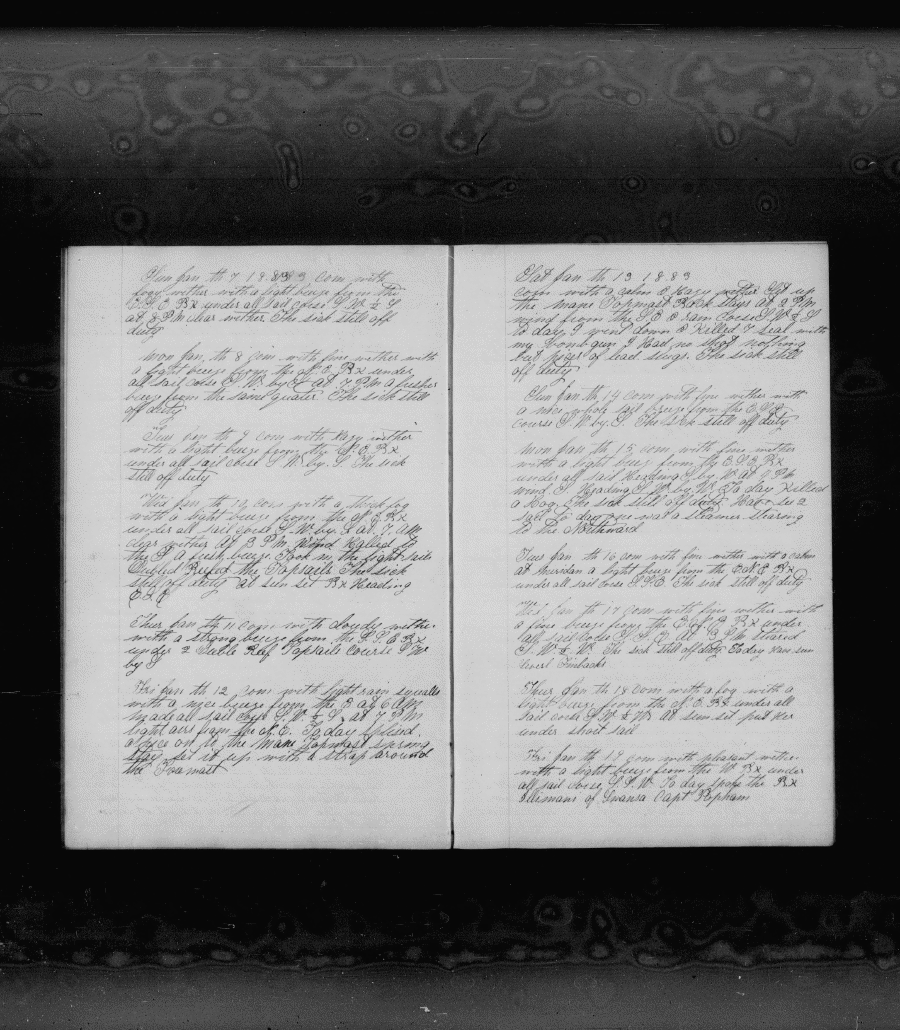 Sun Jan th 7 1883 com with
fogy wither with a light breze from the
E.S.E Bx under all sail corse S.W. ½ S
at 8 P.M clear wether The sick still off
duty
Mon Jan th 8 com with fine wether with
a light breze from the N.E Bx under
all sail corse S.W. by S at 7 P.M a fresher
breze from the same quater The sick still
off duty
Tues Jan th 9 com with hazy wether
with a light breze from the S.E Bx
under all sail corse S.W. by S The sick
still off duty
Wed Jan th 10 com with a thick fog
with a light breze from the N.E Bx
under all sail corse S.W. by S at 7 AM
clear wether at 3 P.M Wind Halled to
the S a fresh breze Took in the light sails
Dubled Reefed the Topsails The sick
still off duty at sun set Bx Heading
E.S.E
Thur Jan th 11 com with cloudy wether
with a strong breze from the S.S.E Bx
under 2 duble Ref Topsails Course S.W
by S
Fri Jan th 12 com with light rain squalls
with a nice breze from the E at 6 A.M
made all sail corse S.W. ½ S at 7 P.M
light airs from the N.E. To day splised
a pice on to the Main Topmast spring
stay set it up with a strap around
the Foamast
Sat Jan th 13 1883
com with a calm & Hazy wether Got up
the Main Topmast Back stays at 2 P.M
wind from the S.E & rain corse S.W ½ S
to day I went down & Killed 7 seal with
my bomb gun I had no shot nothing
but pices of lead slugs. The sick still
off duty
Sun Jan th 14 com with fine wether with
a nice whole sail breze from the E.S.E
course S.W. by S. The sick still off duty
Mon Jan th 15 com with fine wether
with a light breze from the E.S.E Bx
under all sail Heading S by W at 7 P.M
wind S Heading S.W. by W. To day Killed
a Hog The sick still off duty Have seen 2
sail to day one was a steamer stearing
to the Northward
Tues Jan th 16 com with fine wether with a calm
at Meridan a light breze from the E.N.E Bx
under all sail corse S.S.E The sick still off duty
Wed Jan th 17 com with fine wether with
a fine breze from the E.N.E Bx under
all sail corse S.S.E. At 3 P.M steared
S.W ½ W. The sick still off duty To day Have seen
severl Finbacks
Thur Jan th 18 com with a fog with a
light breze from the N.E Bx under all
sail corse S.W ½ W. At sun set put Her
under short sail
Fri Jan th 19 com with pleasant wether
with a light breze from the W Bx under
all sail corse S.S.W. To day spoke the Bx
of Swansa Capt Popham